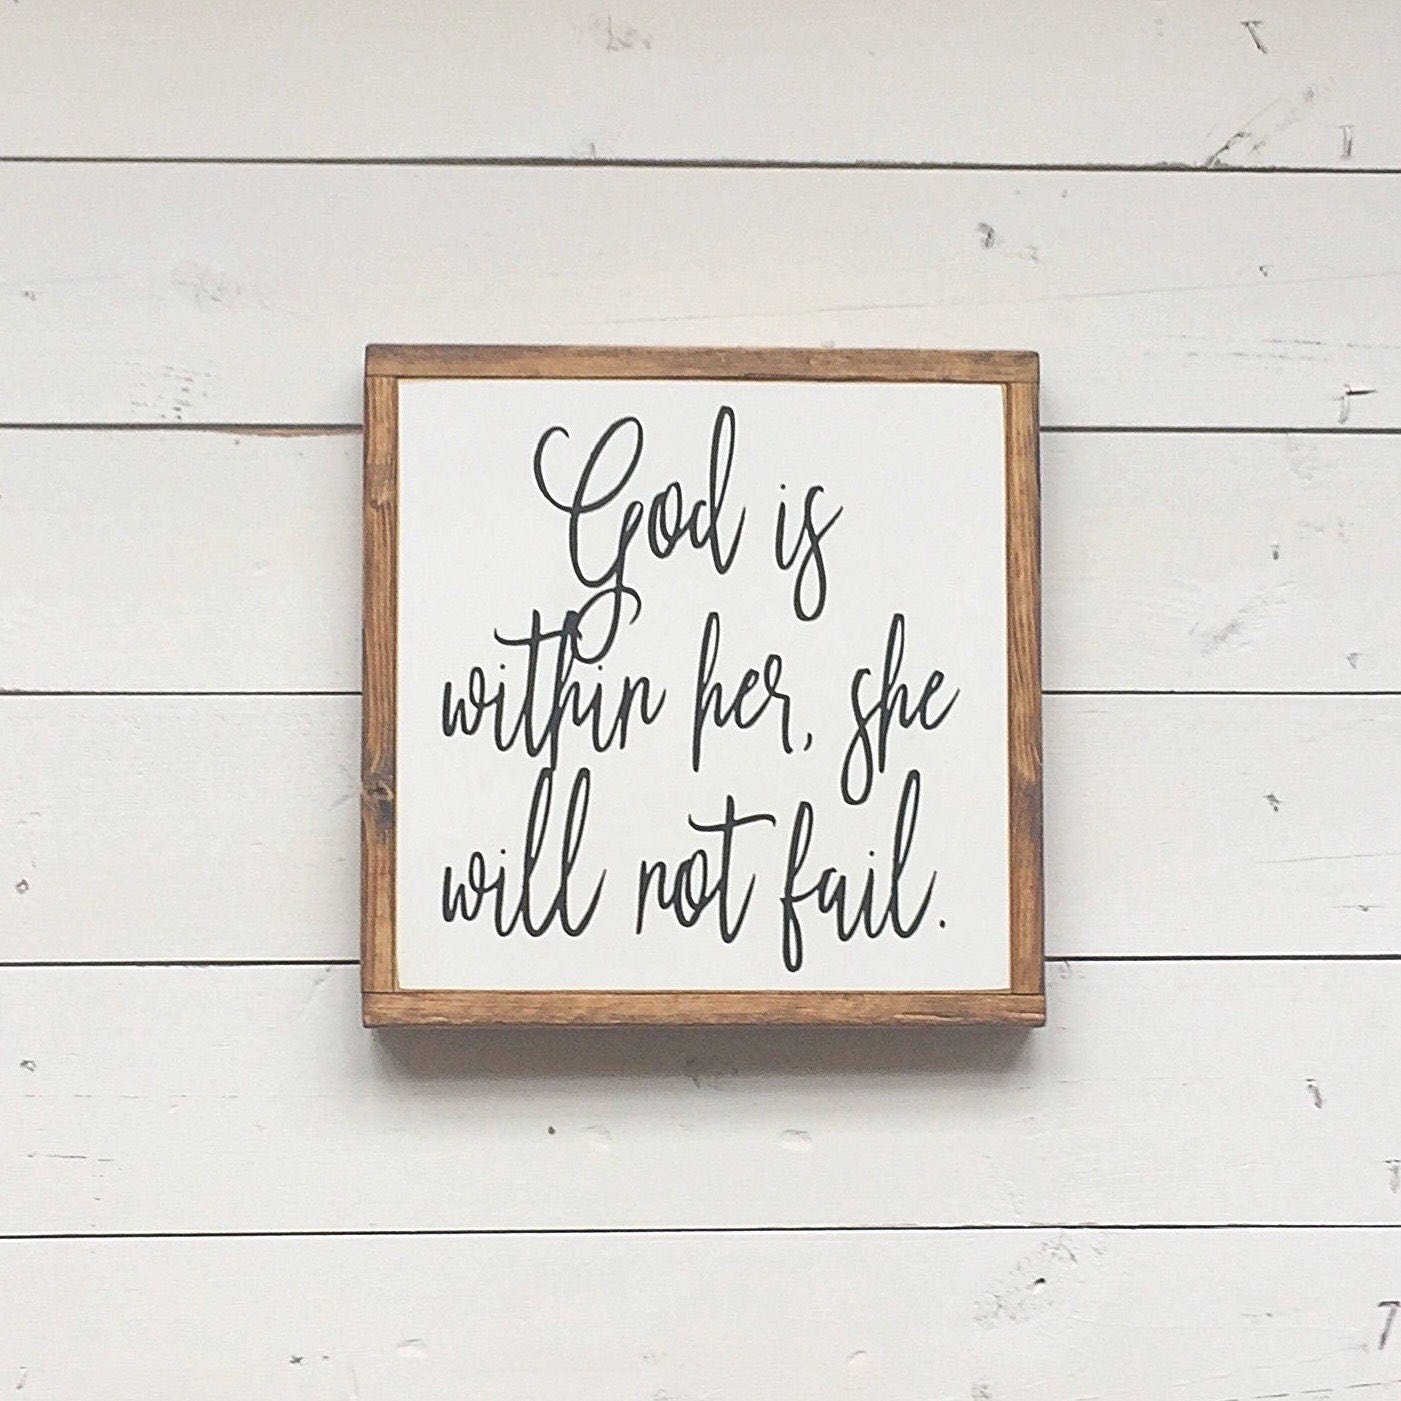 God is
within her, she
will not fail.